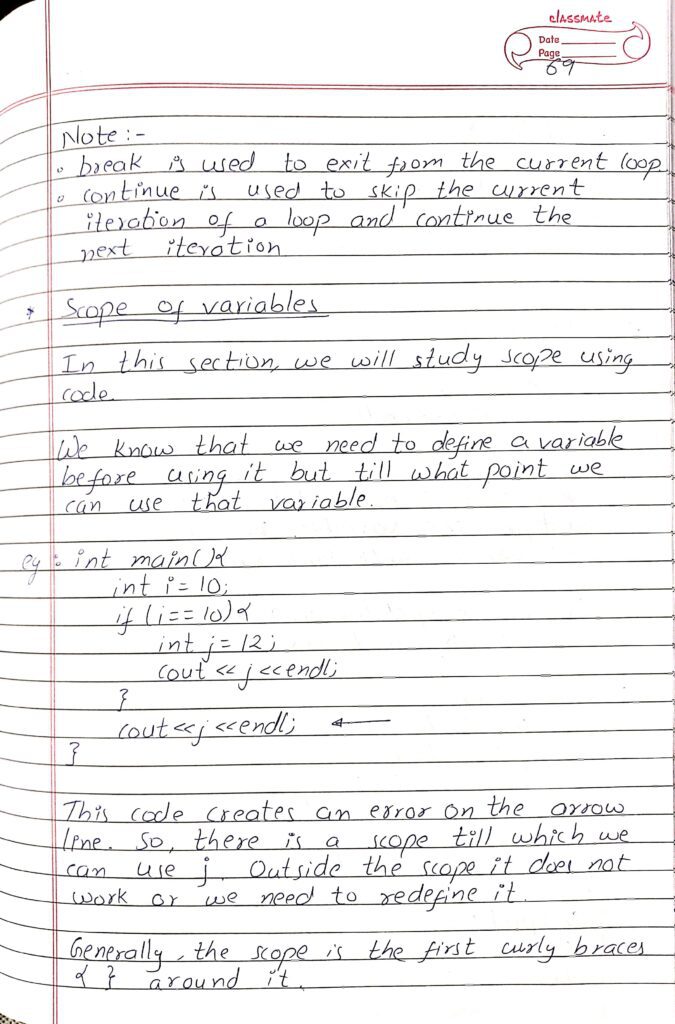 classmate
Date
Page
69
Note :-
• break is used to exit from the current loop
• continue is used to skip the current
iteration of a loop and continue the
next iteration
* Scope of variables
In this section, we will study scope using
code.
We know that we need to define a variable
before using it but till what point we
can use that variable.
eg : int main(){
int i = 10;
if (i == 10){
int j = 12;
cout << j <<endl;
}
cout<<j <<endl; ←
}
This code creates an error on the arrow
line. So, there is a scope till which we
can use j. Outside the scope it does not
work or we need to redefine it.
Generally, the scope is the first curly braces
{ } around it.